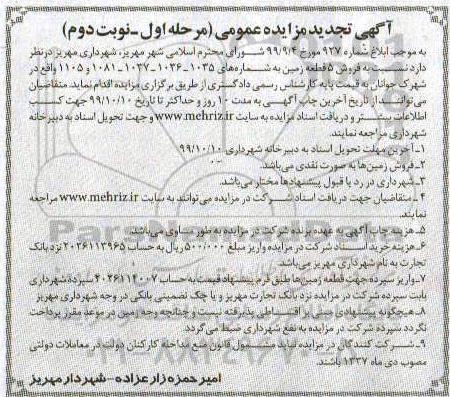 آگهی تجدید مزایده عمومی (مرحله اول - نوبت دوم)
به موجب ابلاغ شماره ۹۲۷ مورخ ۹۹/۹/۴ شورای محترم اسلامی شهر مهریز، شهرداری مهریز در نظر
دارد نسبت به فروش ۵ قطعه زمین به شماره‌های ۱۰۳۵ - ۱۰۳۶ - ۱۰۳۷ - ۱۰۸۱ و ۱۱۰۵ واقع در
شهرک جوانان به قیمت پایه کارشناس رسمی دادگستری از طریق برگزاری مزایده اقدام نماید. متقاضیان
می‌توانند از تاریخ آخرین چاپ آگهی به مدت ۱۰ روز و حداکثر تا تاریخ ۹۹/۱۰/۱۰ جهت کسب
اطلاعات بیشتر و دریافت اسناد مزایده به سایت www.mehriz.ir و جهت تحویل اسناد به دبیرخانه
شهرداری مراجعه نمایند.
۱-آخرین مهلت تحویل اسناد به دبیرخانه شهرداری ۹۹/۱۰/۱۰
۲-فروش زمین‌ها به صورت نقدی می‌باشد.
۳-شهرداری در رد یا قبول پیشنهادها مختار می‌باشد.
۴-متقاضیان جهت دریافت اسناد شرکت در مزایده می‌توانند به سایت www.mehriz.ir مراجعه
نمایند.
۵-هزینه چاپ آگهی به عهده برنده شرکت در مزایده به طور مساوی می‌باشد.
۶-هزینه خرید اسناد شرکت در مزایده واریز مبلغ ۵۰۰/۰۰۰ ریال به حساب ۲۰۲۶۱۱۳۹۶۵ نزد بانک
تجارت به نام شهرداری مهریز می‌باشد.
۷-واریز سپرده جهت قطعه زمین‌ها طبق فرم پیشنهاد قیمت به حساب ۴۰۲۶۱۱۴۰۰۷ سپرده شهرداری
بابت سپرده شرکت در مزایده نزد بانک تجارت مهریز و یا چک تضمینی بانکی در وجه شهرداری مهریز
۸-هیچگونه پیشنهادی مبنی بر اقساطی پذیرفته نیست و چنانچه وجه زمین در موعد مقرر پرداخت
نگردد سپرده شرکت در مزایده به نفع شهرداری ضبط می‌گردد.
۹-شرکت کنندگان در مزایده نباید مشمول قانون منع مداخله کارکنان دولت در معاملات دولتی
مصوب دی ماه ۱۳۳۷ باشند.
امیر حمزه زارعزاده - شهردار مهریز